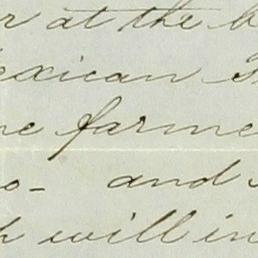 r at the b
exican s
ne farme
o- and s
h will in